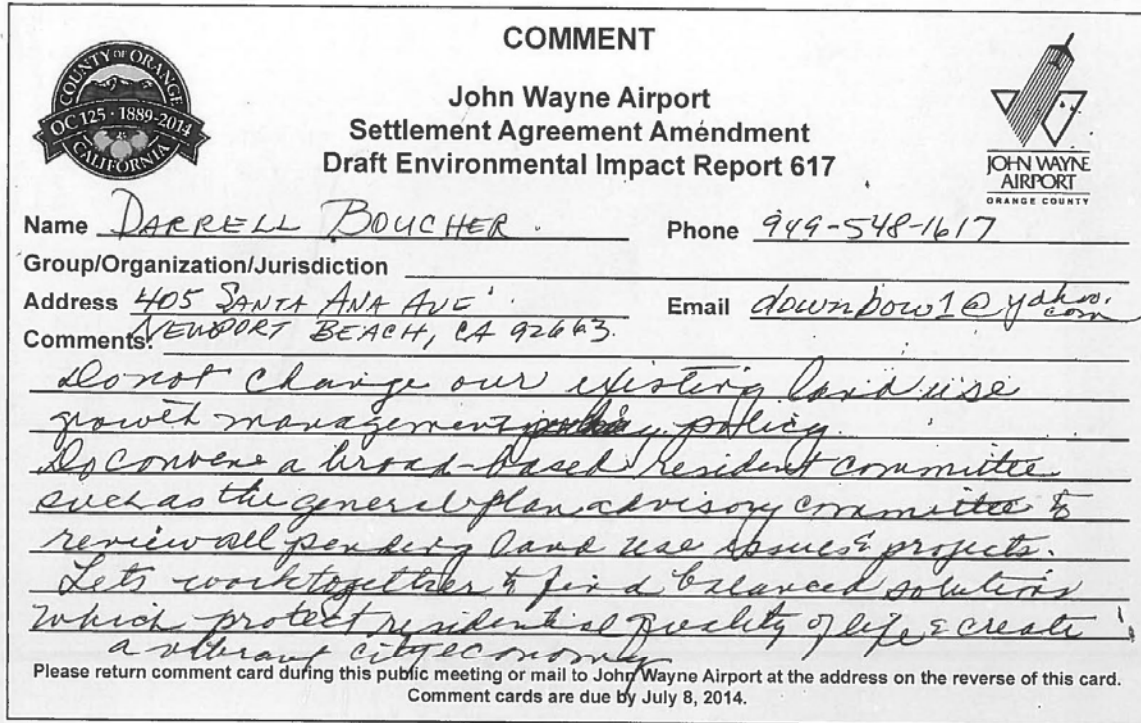 COUNTY OF ORANGE
OC 125 · 1889-2014
CALIFORNIA
COMMENT
John Wayne Airport
Settlement Agreement Amendment
Draft Environmental Impact Report 617
JOHN WAYNE
AIRPORT
ORANGE COUNTY
Name DARRELL BOUCHER. Phone 949-548-1617
Group/Organization/Jurisdiction
Address 405 SANTA ANA AVE. Email downbow1@yahoo.com
NEWPORT BEACH, CA 92663.
Comments:
Do not change our existing land use
growth management policy
Do convene a broad-based resident committee
such as the general plan advisory committee to
review all pending land use issues & projects.
Lets work together to find balanced solutions
which protect residential quality of life & create
a vibrant city economy
Please return comment card during this public meeting or mail to John Wayne Airport at the address on the reverse of this card.
Comment cards are due by July 8, 2014.